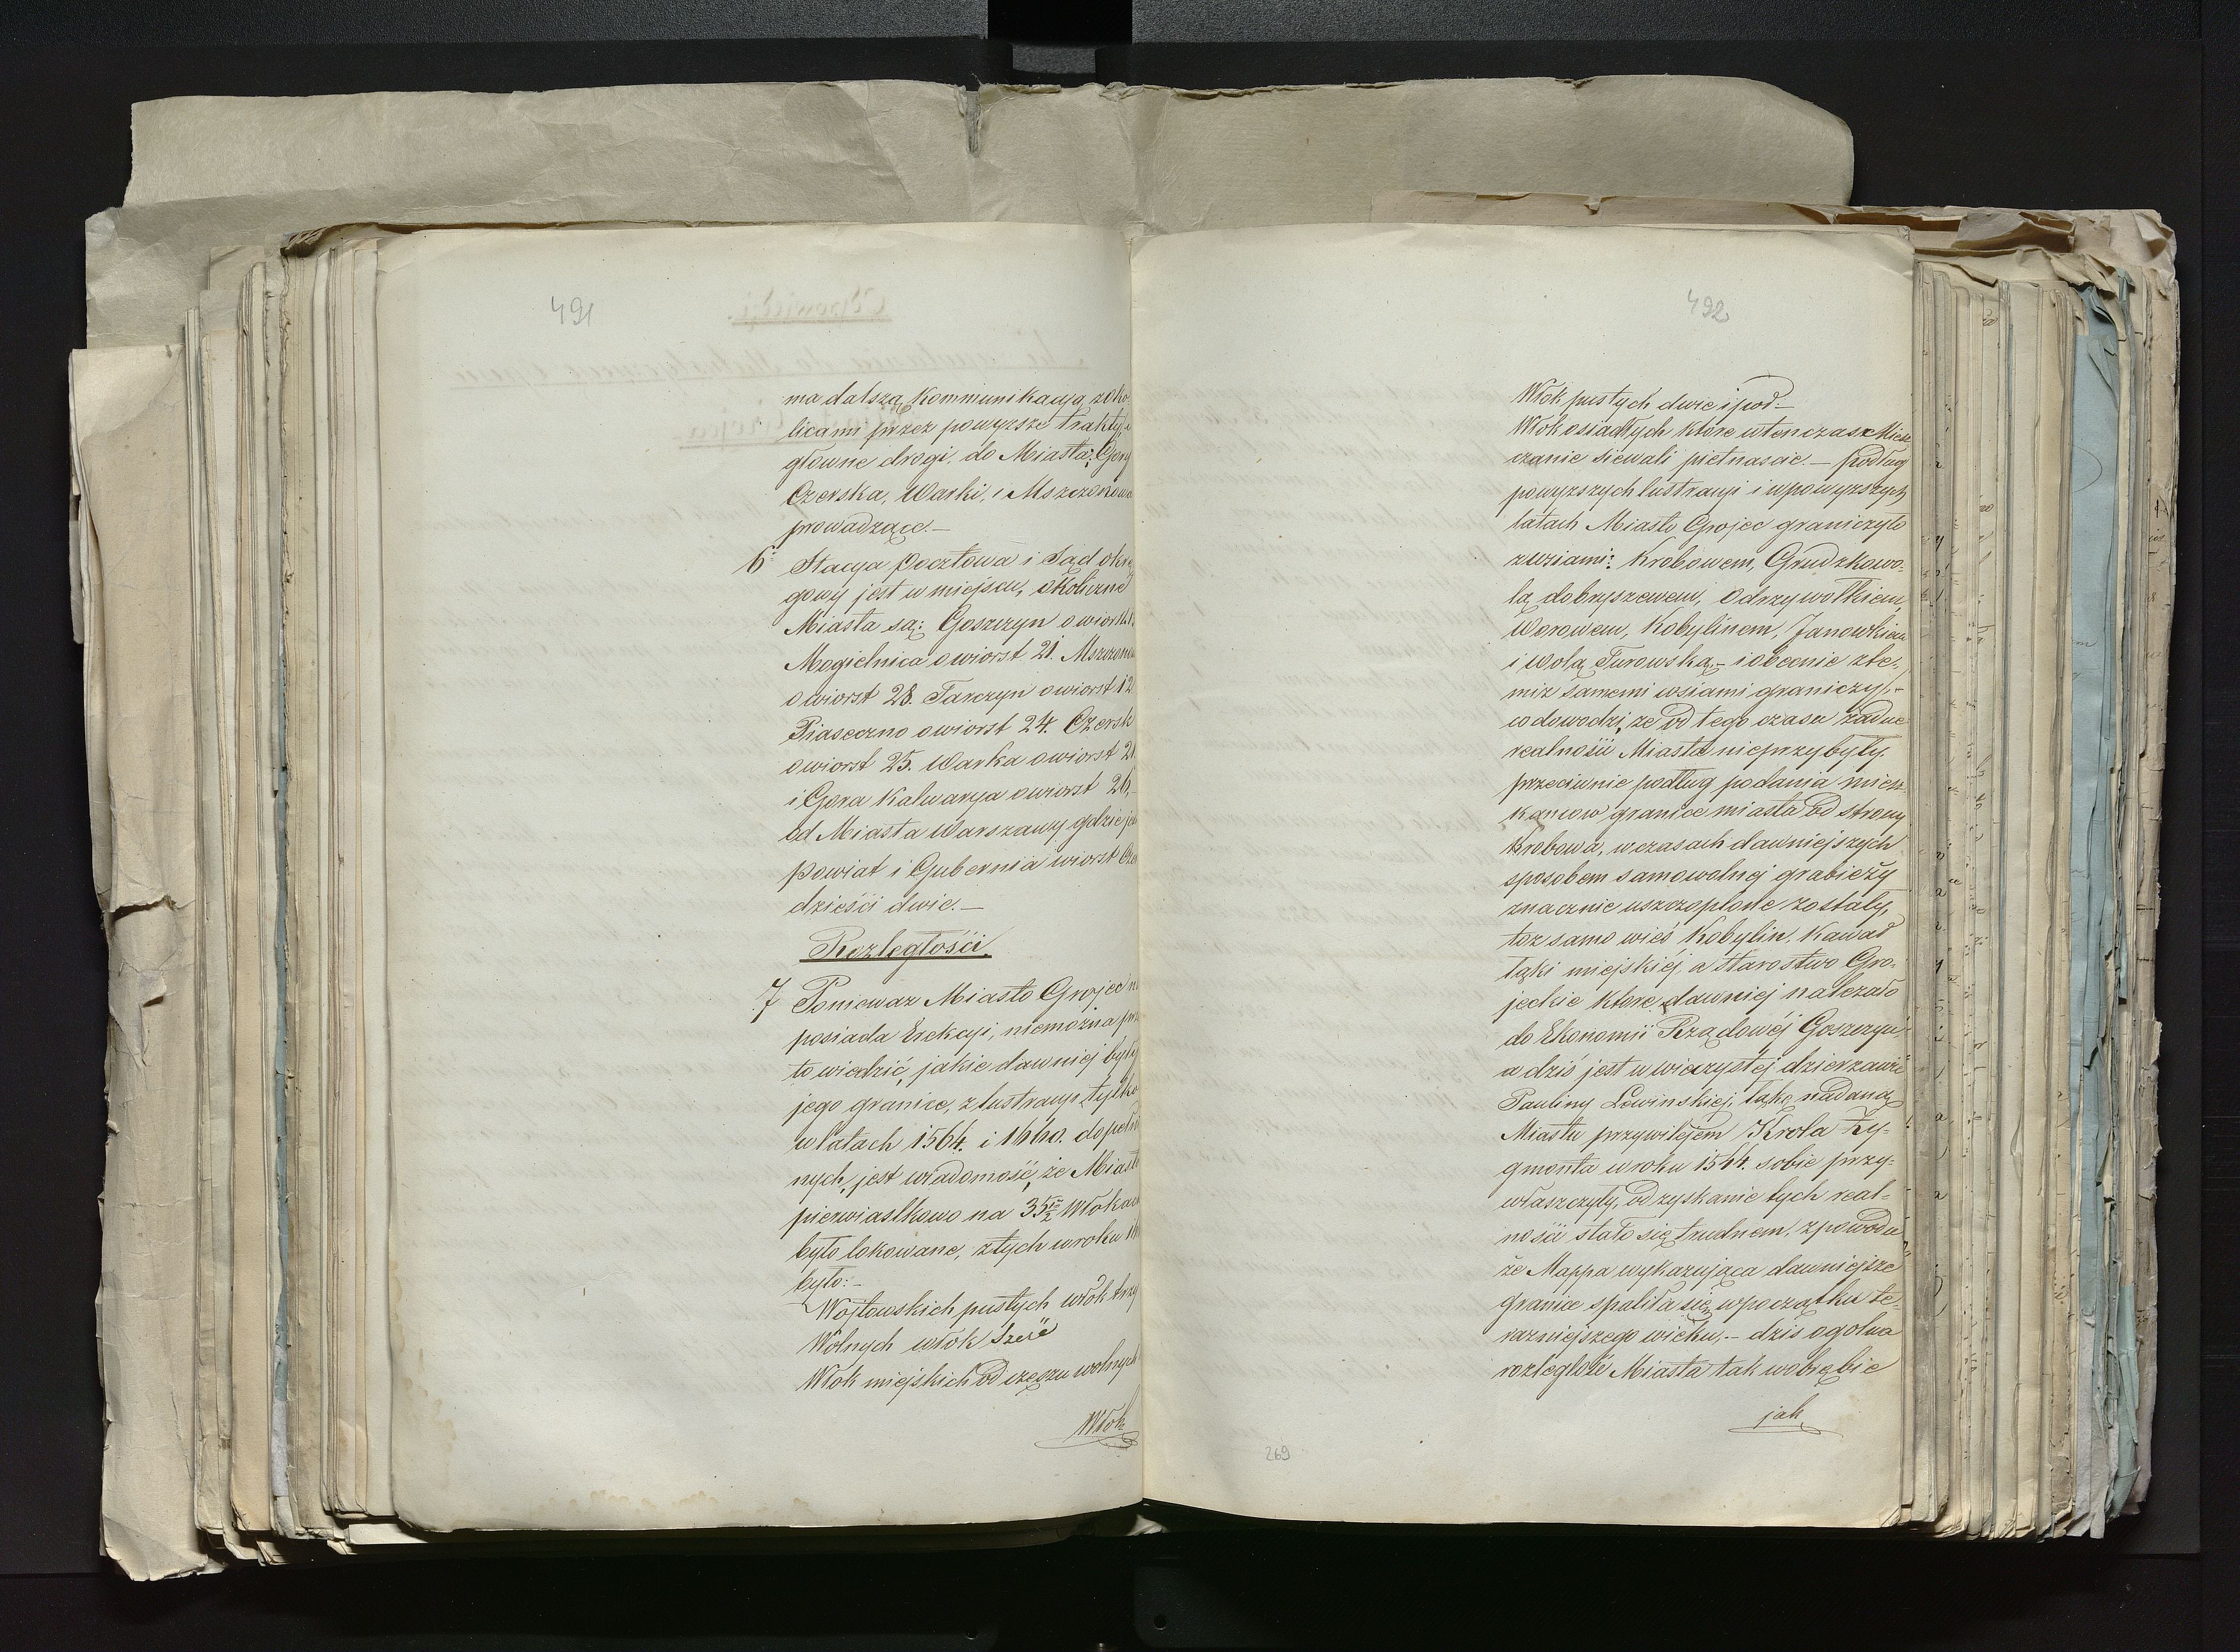 491
ma dalszą Kommunikacyą zoko-
licami przez powyzsze trakty i
głowne drogi do Miasta: Gory
Czerska, Warki, i Mszczonowa
prowadzące.—
6. Stacya pocztowa i Sąd okrę
gowy jest w miejscu, okoliczne
Miasta są: Goszczyn o wiorst
Mogielnica o wiorst 21. Mszczonow
o wiorst 28. Tarczyn o wiorst 12
Piaseczno o wiorst 24. Czersk
o wiorst 25. Warka o wiorst 21.
i Gora Kalwarya o wiorst 26,—
od Miasta Warszawy gdzie jest
powiat i Gubernia wiorst
dzieści dwie.—
Rozległości.
7 Poniewaz Miasto Grojec nie
posiada Erekcyi, niemożna prze
to wiedzić, jakie dawniej były
jego granice, z lustracyi tylko
w latach 1564. i 1660. dopełnio
nych, jest wiadomość, że Miasto
pierwiastkowo na 35 1/2 Włokach
było lokowane, z tych w roku
było:—
Wojtowskich pustych włok trzy
Wolnych włok Sześć
Włok miejskich od czynszu wolnych
Włok
492
Włok pustych dwie i poł—
Włok osiadłych ktore wtenczas Miesz
czanie siewali pietnascie.— podług
powyzszych lustracyi i w powyzszych
latach Miasto Grojec graniczyło
z wsiami: Krobowem, Grudzkowo-
lą, dobryszewem, Odrzywołkiem,
Worowem, Kobylinem, Janowkiem
i Wolą Turowską,— i obecnie z te-
miz samemi wsiami graniczy,—
co dowodzi, ze od tego czasu żadne
realności Miasta nieprzybyły.
przeciwnie podług podania miesz-
kancow granice miasta od strony
Krobowa, w czasach dawniejszych
sposobem samowolnej grabieży
znacznie uszczoplone zostały,
toz samo wieś Kobylin. Kawał
łąki miejskiej, a Starostwo Gro-
jeckie ktore dawniej nalezało
do Ekonomii Rządowéj Goszczyn,
a dziś jest w wieczystej dzierzawie
Pauliny Lewinskiej, łąkę nadaną
Miastu przywilejem Krola Zy-
gmonta w roku 1564. sobie przy-
właszczyły, odzyskanie tych real-
nosci stało się trudnem, z powodu
że Mappa wykazująca dawniejsze
granice spaliła się w początku te-
razniejszego wieku,— dziś ogolna
rozległość Miasta tak w obrębie
jak
269